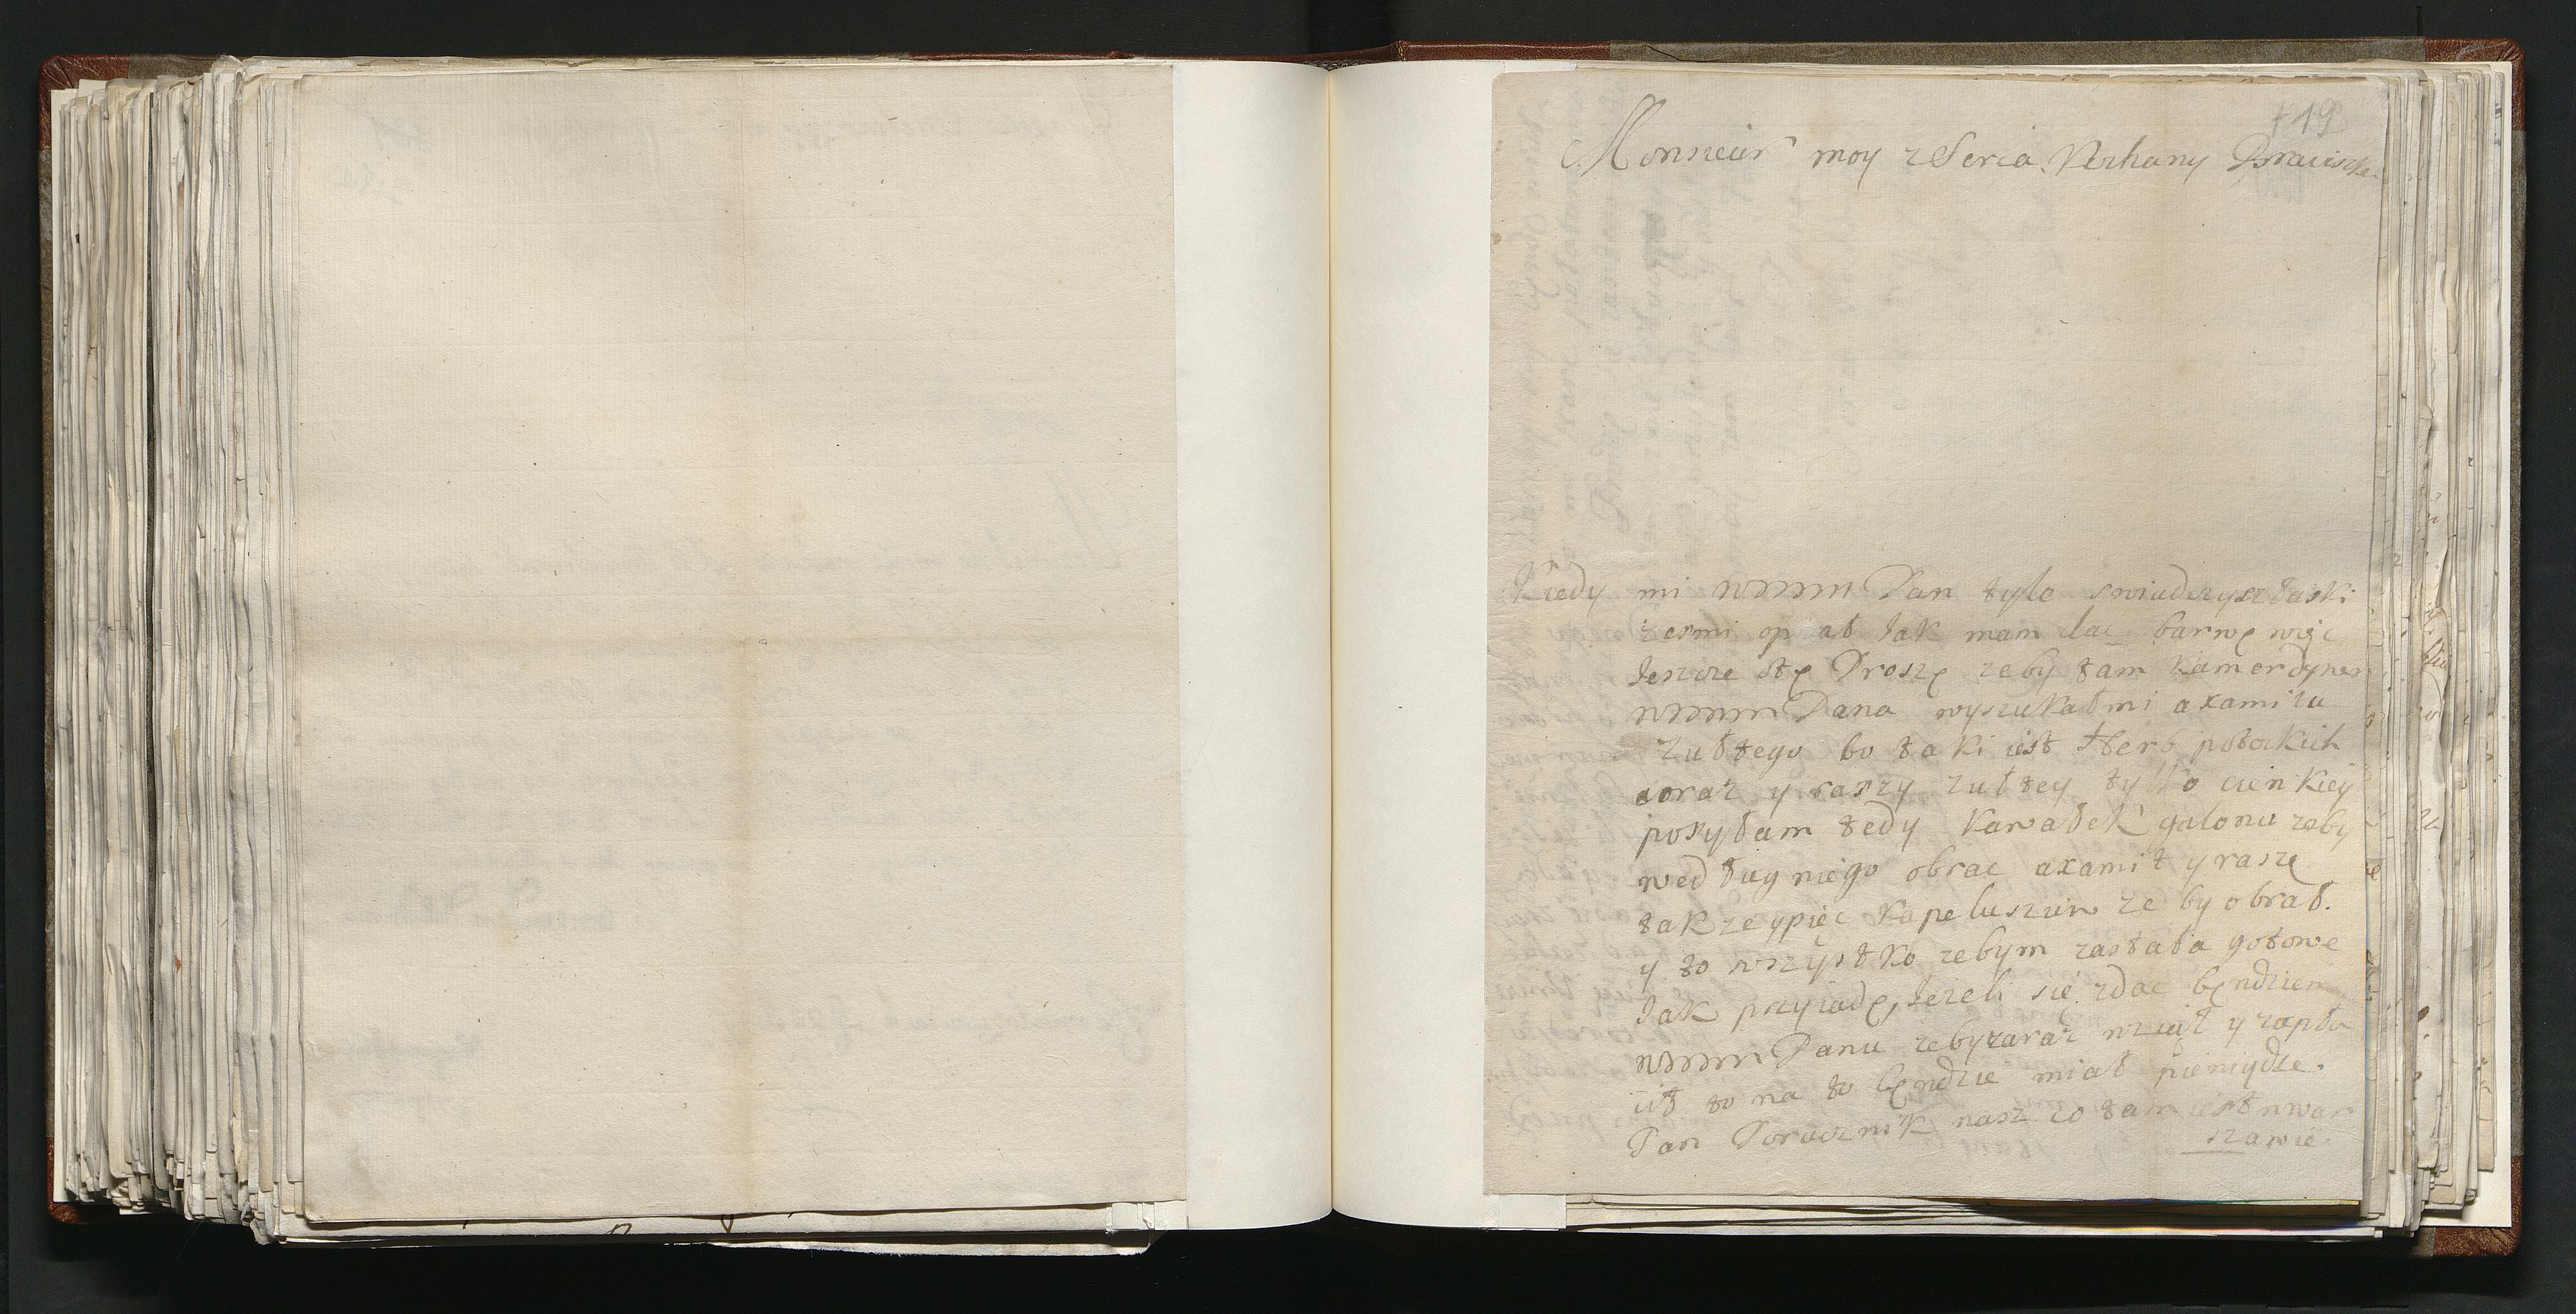 19
Monsieur moy z Serca Kochany Braciszku
Kiedy mi WMM Pan tylo swiadczysz łaski
zesmi opisał Jak mam dac barwę więc
Jeszcze Prosze zeby tam Kamerdyner
WMM Pana wyszukał mi axamitu
zułtego bo taki iest Herb potockich
oraz y raszy zułtey tylko cienkiey
posyłam tedy Kawałek galonu zeby
według niego obrac axamit y raszę
takze ypięc Kapeluszuw ze by obrał.
y to wszystko zebym zastała gotowe
Jak przyiadę, Jezeli się zdac będzie
WMM Panu zebyzaraz wziął y zapła
cił to na to będzie miał pieniądze.
Pan Porucznik nasz co tam iest wwar
szawie.